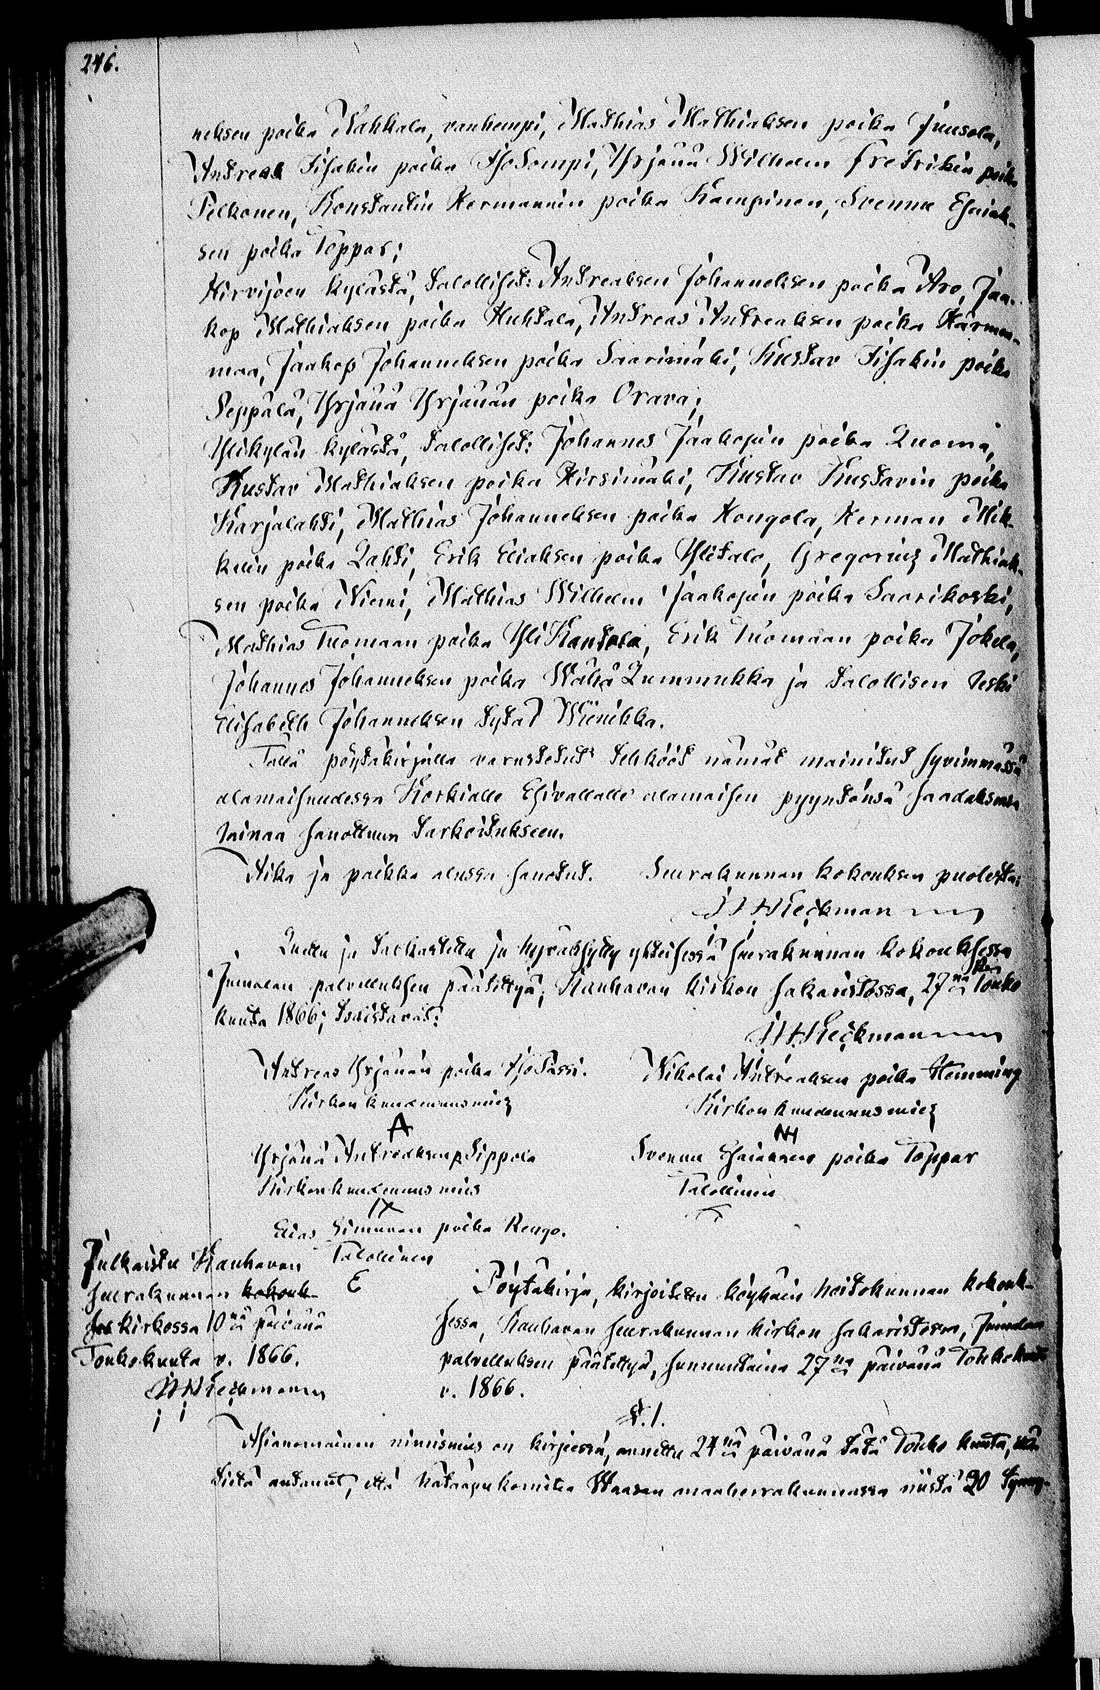 246.
neksen poika Nahkala, vanhempi, Mathias Mathiaksen poika Juusola,
Andreas Iisakin poika Isosompi, Yrjänä Wilhelm Fredrikin poika
Pelkonen, Konstantin Hermannin poika Kampinen, Svenne Esaiak-
sen poika Toppar;
Hirvijoen kylästä, talolliset: Andreaksen Johanneksen poika Aro, Jaa-
kop Mathiaksen poika Huhtala, Andreas Andreaksen poika Härmän-
maa, Jaakop Johanneksen poika Saarimäki, Kustav Iisakin poika
Seppälä, Yrjänä Yrjänän poika Orava;
Ylikylän kylästä, talolliset: Johannes Jaakopin poika Luoma,
Kustav Mathiaksen poika Hirsimäki, Kustav Kustavin poika
Karjalahti, Mathias Johanneksen poika Hongola, Herman Mik-
kelin poika Lahti, Erik Eliaksen poika Ylitalo, Gregorius Mathiak-
sen poika Niemi, Mathias Wilhelm Jaakopin poika Saarikoski,
Mathias Tuomaan poika YliKantola, Erik Tuomaan poika Jokela,
Johannes Johanneksen poika Wähä Lummukka ja talollisen leski
Elisabeth Johanneksen tytär Wienikka.
Tällä pöytäkirjalla varustetut tehkööt nämät mainitut syvimmässä
alamaisuudessa Korkialle Esivallalle alamaisen pyyntönsä saadaksensa
lainaa sanottuun tarkoitukseen.
Aika ja paikka alussa sanotut. Seurakunnan kokouksen puolesta:
J H Kieckman
Luettu ja tarkastettu ja hyväksytty yhteisessä seurakunnan kokouksessa
Jumalan palveluksen päätettyä, Kauhavan kirkon sakaristossa, 27nä Touko
kuuta 1866; todistavat:
J H Kieckman
Andreas Yrjänän poika IsoPassi. Nikolai Andreaksen poika Hemming
Kirkon kuudennusmies Kirkon kuudennusmies
A NH
Yrjänä Andreaksenp. Sippola Svenne Esaiaksen poika Toppar
Kirkon kuudennus mies Talollinen
Elias Simunan poika Rengo.
Talollinen
E
Julkaistu Kauhavan
seurakunnan kokouk-
kirkossa 10nä päivänä
Toukokuuta v. 1866.
J H Kieckmann
Pöytäkirja, kirjoitettu köyhäin hoitokunnan kokouk-
sessa, Kauhavan seurakunnan kirkon sakaristossa, Jumalan
palveluksen päätettyä, sunnuntaina 27nä päivänä Toukokuuta
v. 1866.
§. 1.
Asianomainen nimismies on kirjeessä, annettu 24nä päivänä tätä Touko kuuta,
tietä antanut, että hätäapukomitea Waasan maaherrakunnassa niistä 20